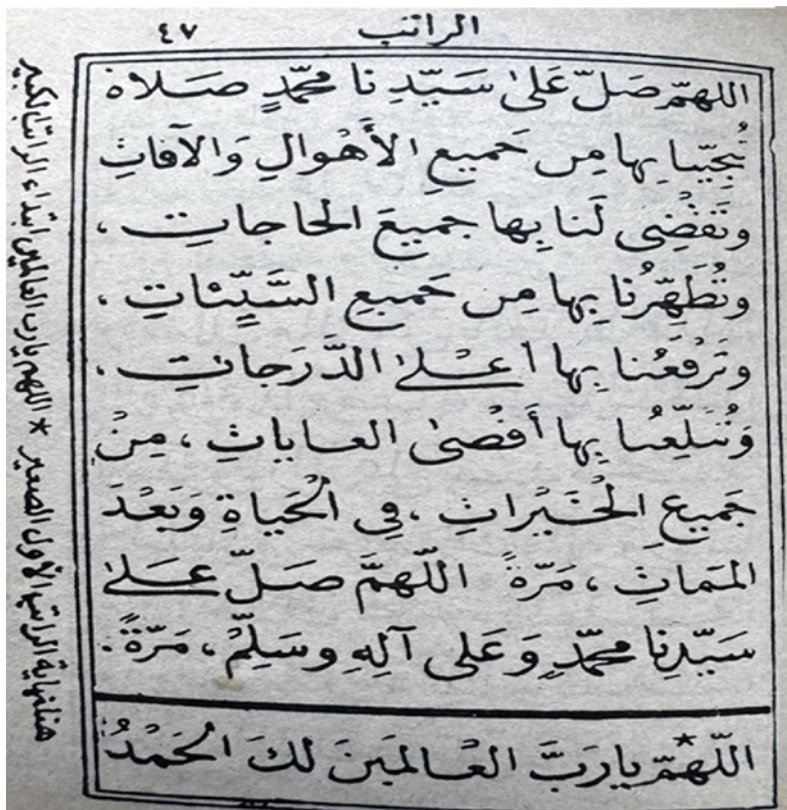 الراتب ٤٧
اللهمّ صَلّ عَلىٰ سَيّدِنا محمّدٍ صَلاة
تُنجِيّنا بِها مِن جَميعِ الأَهْوالِ وَالآفاتِ
وتَقْضِى لَنا بِها جميعَ الحاجاتِ ،
وتُطَهِّرُنا بِها مِن جَميعِ السَّيِّئاتِ ،
وتَرْفَعُنا بِها أعْلىٰ الدَّرَجاتِ ،
وَتُبَلِّغُنا بِها أَقْصىٰ الغاياتِ ، مِنْ
جَميعِ الْخَيْراتِ ، فِى الْحَياةِ وَبَعْدَ
المَماتِ ، مَرّةً اللّهمَّ صَلّ عَلىٰ
سَيّدِنا محمّدٍ وَعَلى آلِهِ وسَلِّمْ ، مَرّةً .
اللّهمّ* يارَبَّ العْالمَينَ لكَ الحَمْدُ
هنا نهاية الراتب الأول الصغير * اللهم يارب العالمين ابتداء الراتب الكبير